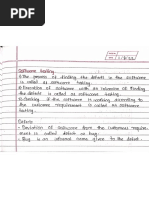 Software testing :-
① The process of finding the defects in the software
is called as software testing.
② Execution of software with an intension of finding
the defects is called as software testing.
③ Checking if the software is working according to
the customer requirement is called as software
testing.
Defects
- Deviation of software from the customers require-
ment is called defects or bugs.
- Bug is an informal name given to the defect.